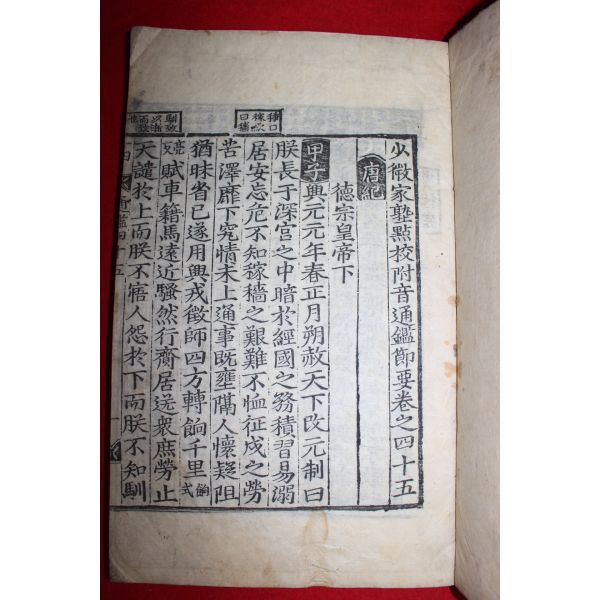 少微家塾點校附音通鑑節要卷之四十五
唐紀
德宗皇帝下
甲子興元元年春正月朔赦天下改元制曰
朕長于深宮之中暗於經國之務積習易溺
居安忘危不知稼穡之艱難不恤征戍之勞
苦澤靡下究情未上通事旣壅隔人懷疑阻
猶昧省己遂用興戎徵師四方轉餉千里餉式
亮反賦車籍馬遠近騷然行齎居送衆庶勞止
天譴於上而朕不寤人怨於下而朕不知馴
種曰稼斂曰穡
馴致以漸而致也